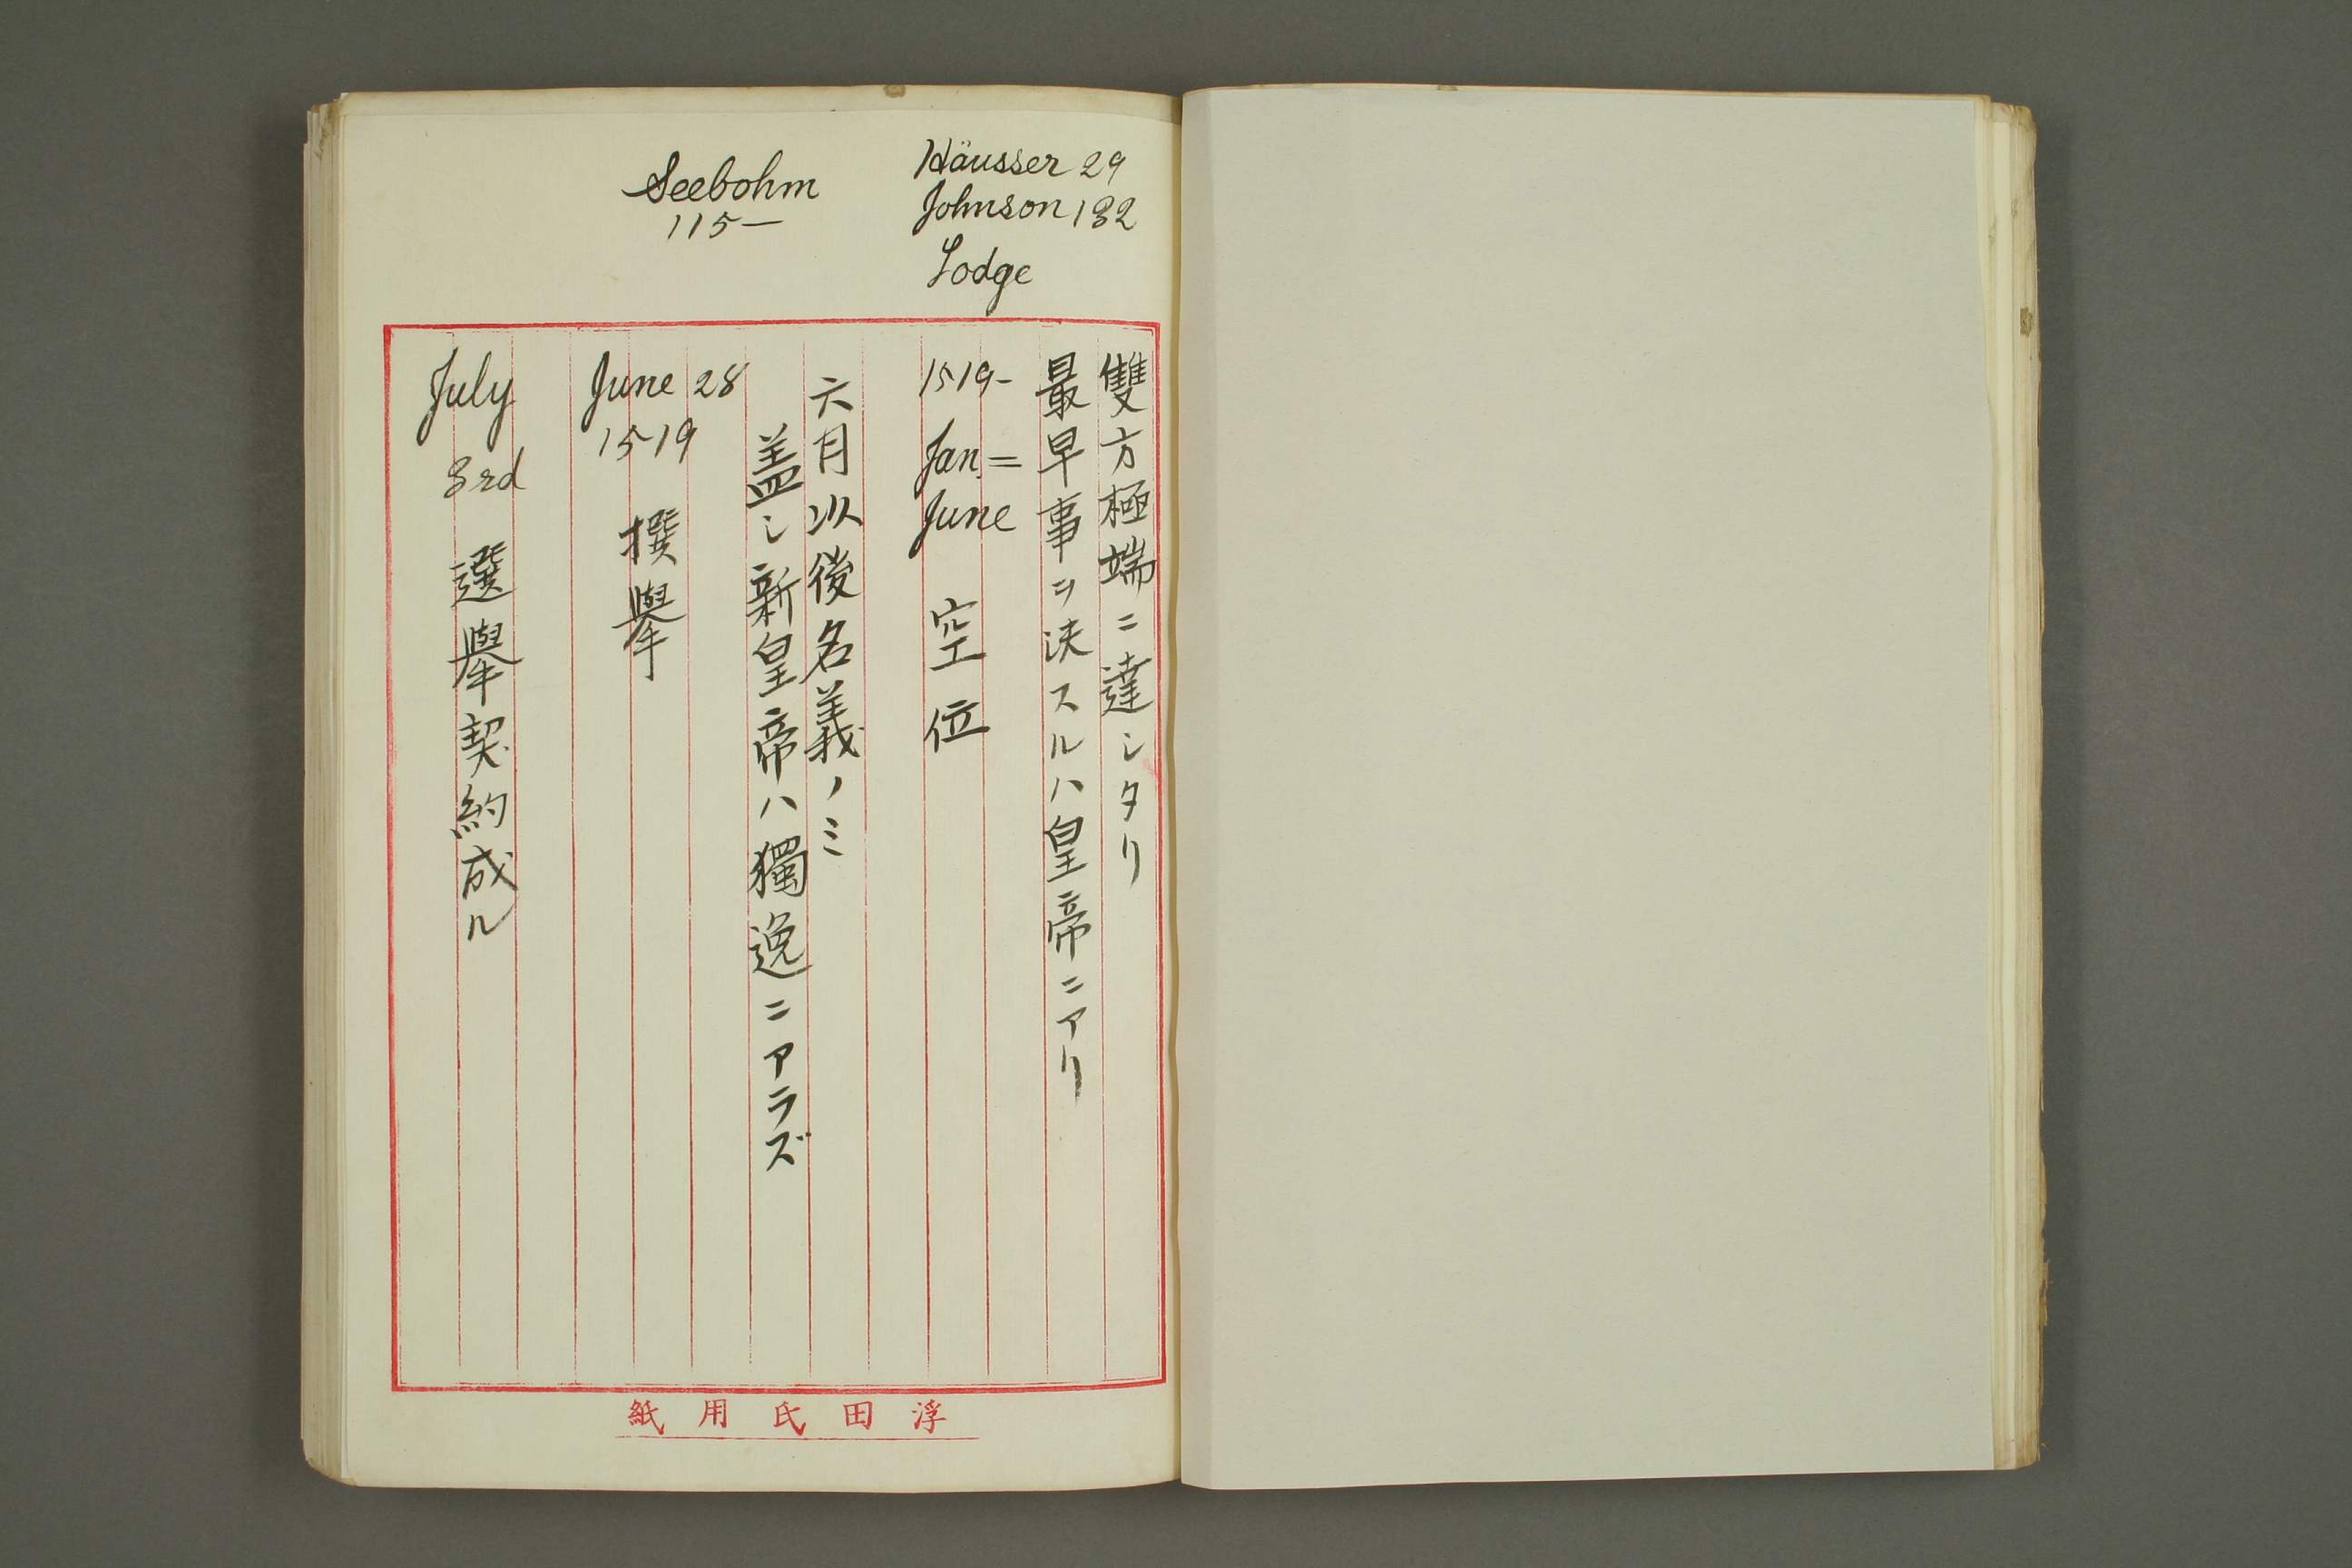 Häusser 29
Johnson 132
Lodge
Seebohm
115—
雙方極端ニ達シタリ
最早事ヲ决スルハ皇帝ニアリ
1519-
Jan.=
June
空位
六月以後名義ノミ
盖シ新皇帝ハ獨逸ニアラズ
June 28
1519
撰擧
July
3rd
選擧契約成ル
紙用氏田浮